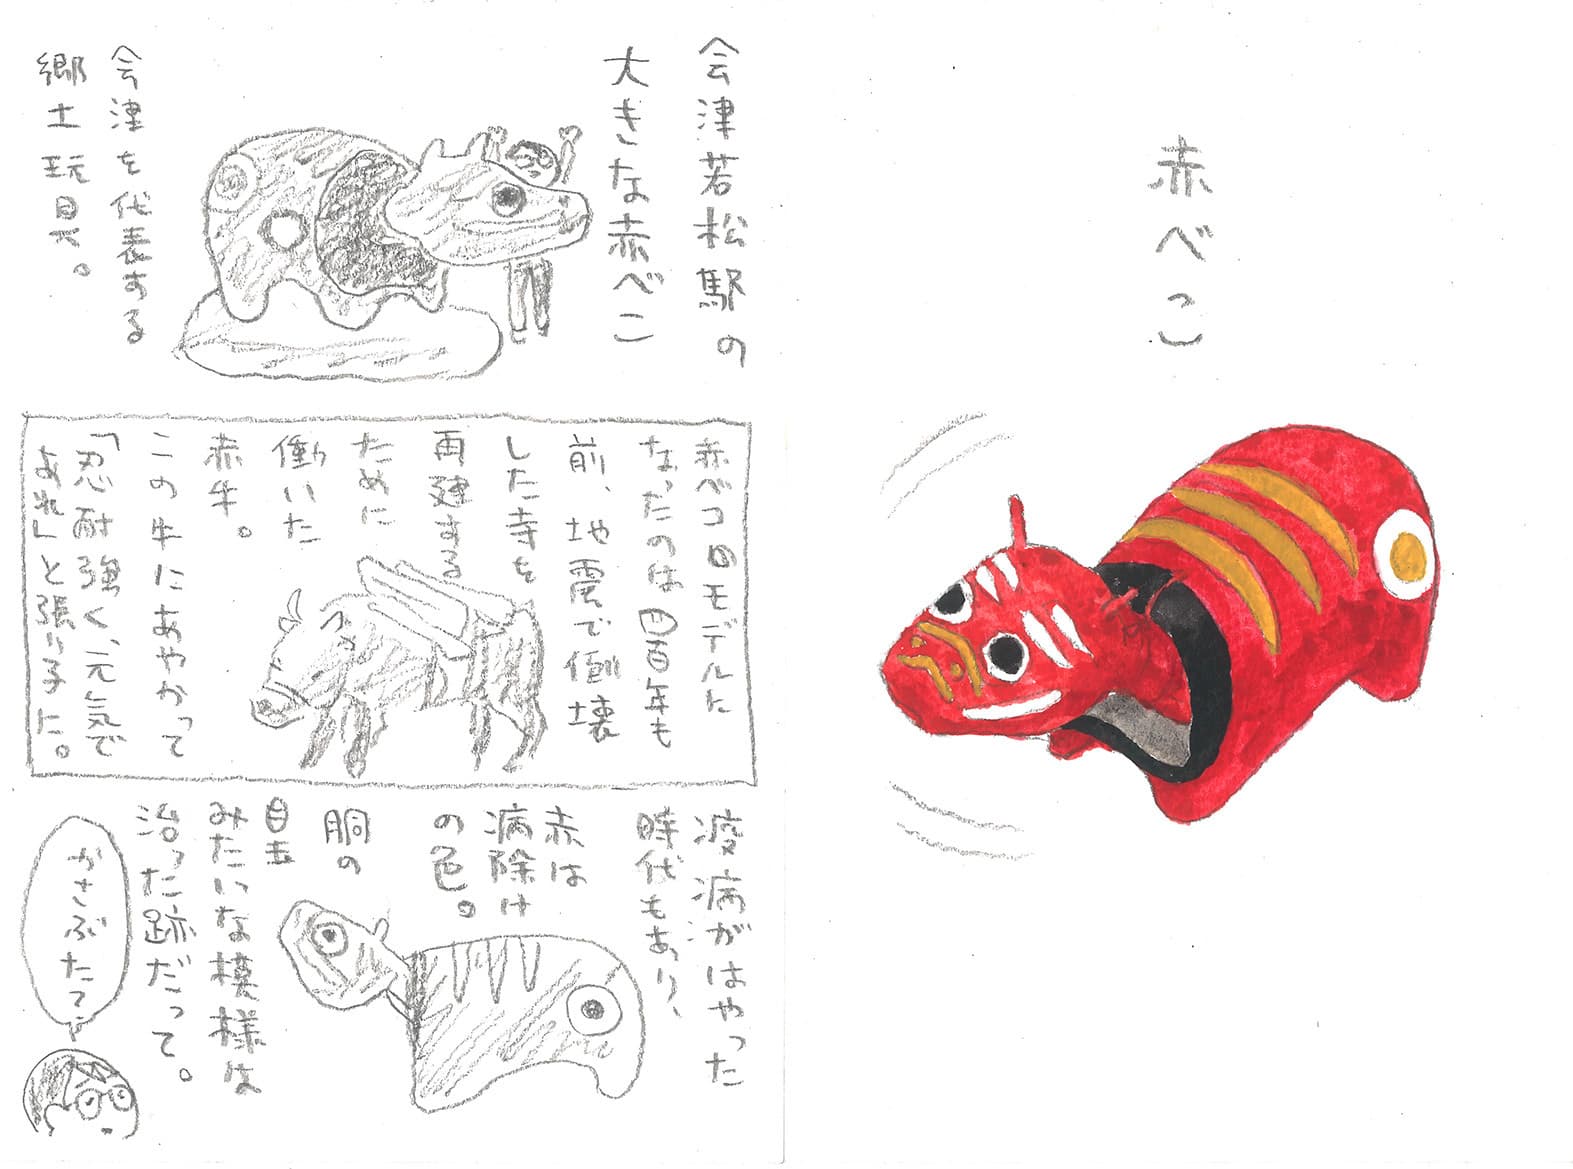 赤べこ
会津若松駅の
大きな赤べこ
会津を代表する
郷土玩具。
赤ベコのモデルに
なったのは四百年も
前、地震で倒壊
した寺を
再建する
ために
働いた
赤牛。
この牛にあやかって
「忍耐強く、元気で
あれ」と張り子に。
疫病がはやった
時代もあり、
赤は
病除け
の色。
胴の
目玉
みたいな模様は
治った跡だって。
かさぶたて?